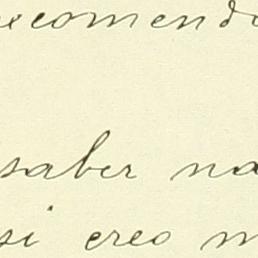 recomendo
saber na
si creo m